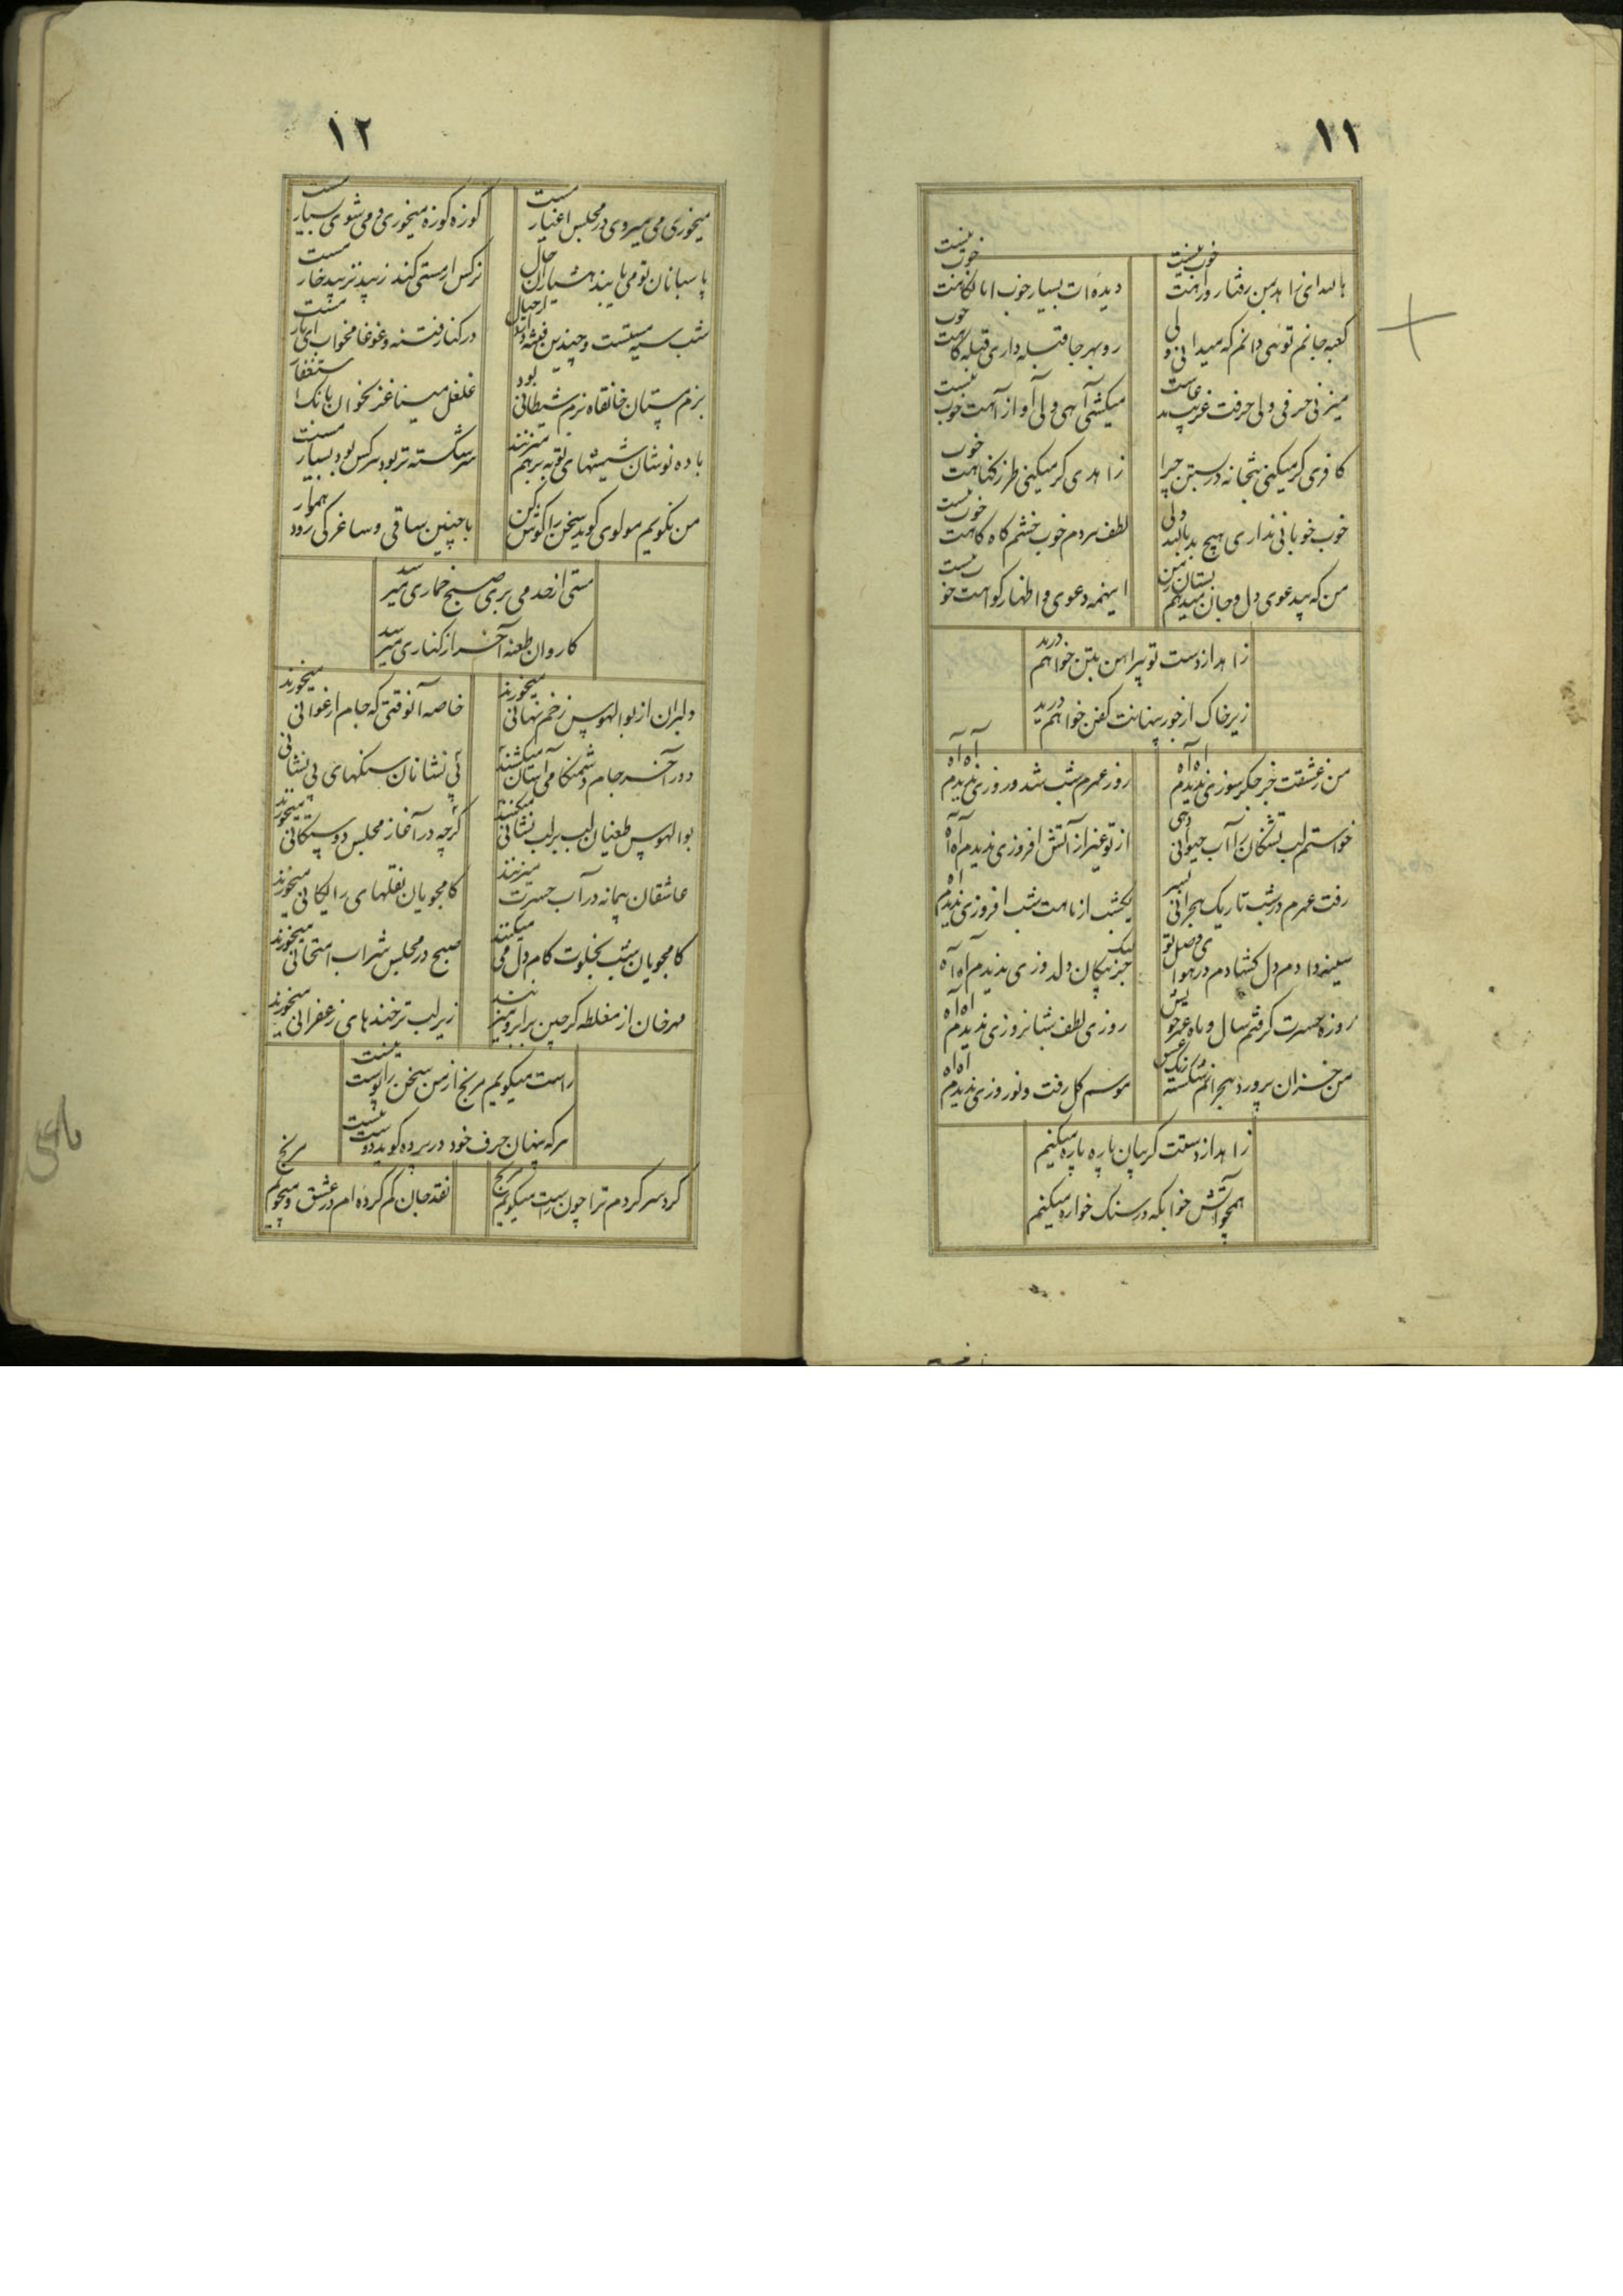 ١١
هاسد ای زاهد من رفتار و راهت خوب نیست
دیده‌ات بسیار خوب اما نگاهت خوب نیست
کعبه جانم توئی دانم که میدانی ولی
رو بهر جا قبله داری قبله گاهت خوب
میزنی حرفی ولی حرفت غریب
میکشی آهی ولی آواز آهت خوب نیست
کافری گر میکنی بتخانه در بستن چرا
زاهدی گر میکنی طرز کناهت خوب
خوب خوبانی نداری هیچ بد باشد ولی
لطف مردم خوب خشم گاه گاهت خوب نیست
من که بیدعوی دل و جان میدهم بستان ز من
اینهمه دعوی و اظهار گواهت خو نیست
زاهد از دست تو پیراهن بتن خواهم درید
زیر خاک از جور پنهانت کفن خواهم درید
من ز عشقت جز جگر سوزی ندیدم آه آه
روز عمرم شب شد و روزی ندیدم آه آه
خواستم لب تشنگان را آب حیوانی دهی
از تو غیر از آتش افروزی ندیدم آه آه
رفت عمرم در شب تاریک هجرانی بسر
یکشب از ماهت شب افروزی ندیدم آه
سینه دادم دل گشادم در هوای وصل تو
لیک جز پیکان دلدوزی ندیدم آه آه
روزه حسرت گرفتم سال و ماه عمر خویش
روزی لطف شبانروزی ندیدم آه آه
من خزان پرورد هجرانم شکسته رنگ
موسم گل رفت و نوروزی ندیدم آه آه
زاهد از دستت گریبان پاره پاره میکنم
همچو آتش خوابگه در سنگ خواره میکنم
١٢
میخوری می میروی در مجلس اغیار مست
کوزه کوزه میخوری و می شوی بسیار مست
پاسبانان تو می باید هشیاران
نرکس ار مستی کند زیبد نزیبد خار مست
شب سیه مستست و چندین فتنه
در کنار فتنه و غوغا مخواب ای یار مست
بزم مستان خانقاه بزم شیطانی بود
غلغل مینا غنر بخوان بانک استغفار
باده نوشان شیشهای توبه بر هم میزنند
سر شکسته تر بود هر کس بود بسیار مست
من نگویم مولوی گوید سخن را گوش کن
با چنین ساقی و ساغر کی رود هموار
مستی از حد می بری صبح خماری میرسد
کاروان طعنه آخر از کناری میرسد
دلبران از بوالهوس زخم نهانی میخورند
خاصه آنوقتی که جام ارغوانی میخورند
دور آخر جام دشمنکامی آسان میکشند
پی نشانان سنکهای بی نشانی
بوالهوس طغیان لب بر لب نشانی میکنند
گرچه در آغاز مجلس دوستکانی میخورند
عاشقان پیمانه در آب حسرت میزنند
کامجویان نقلهای رایکانی میخورند
کامجویان شب بخلوت کام دل می میکنند
صبح در مجلس شراب امتحانی میخورند
مهرخان از مغلطه گر چین بر ابرو میزنند
زیر لب تر خندهای زعفرانی میخورند
راست میگویم مرنج از من سخن را پوست نیست
هر که پنهان حرف خود در پرده گوید دوست نیست
گرد سر گردم ترا چون راست میگویم مرنج
نقد جان گم کرده‌ام در عشق و میجویم مرنج